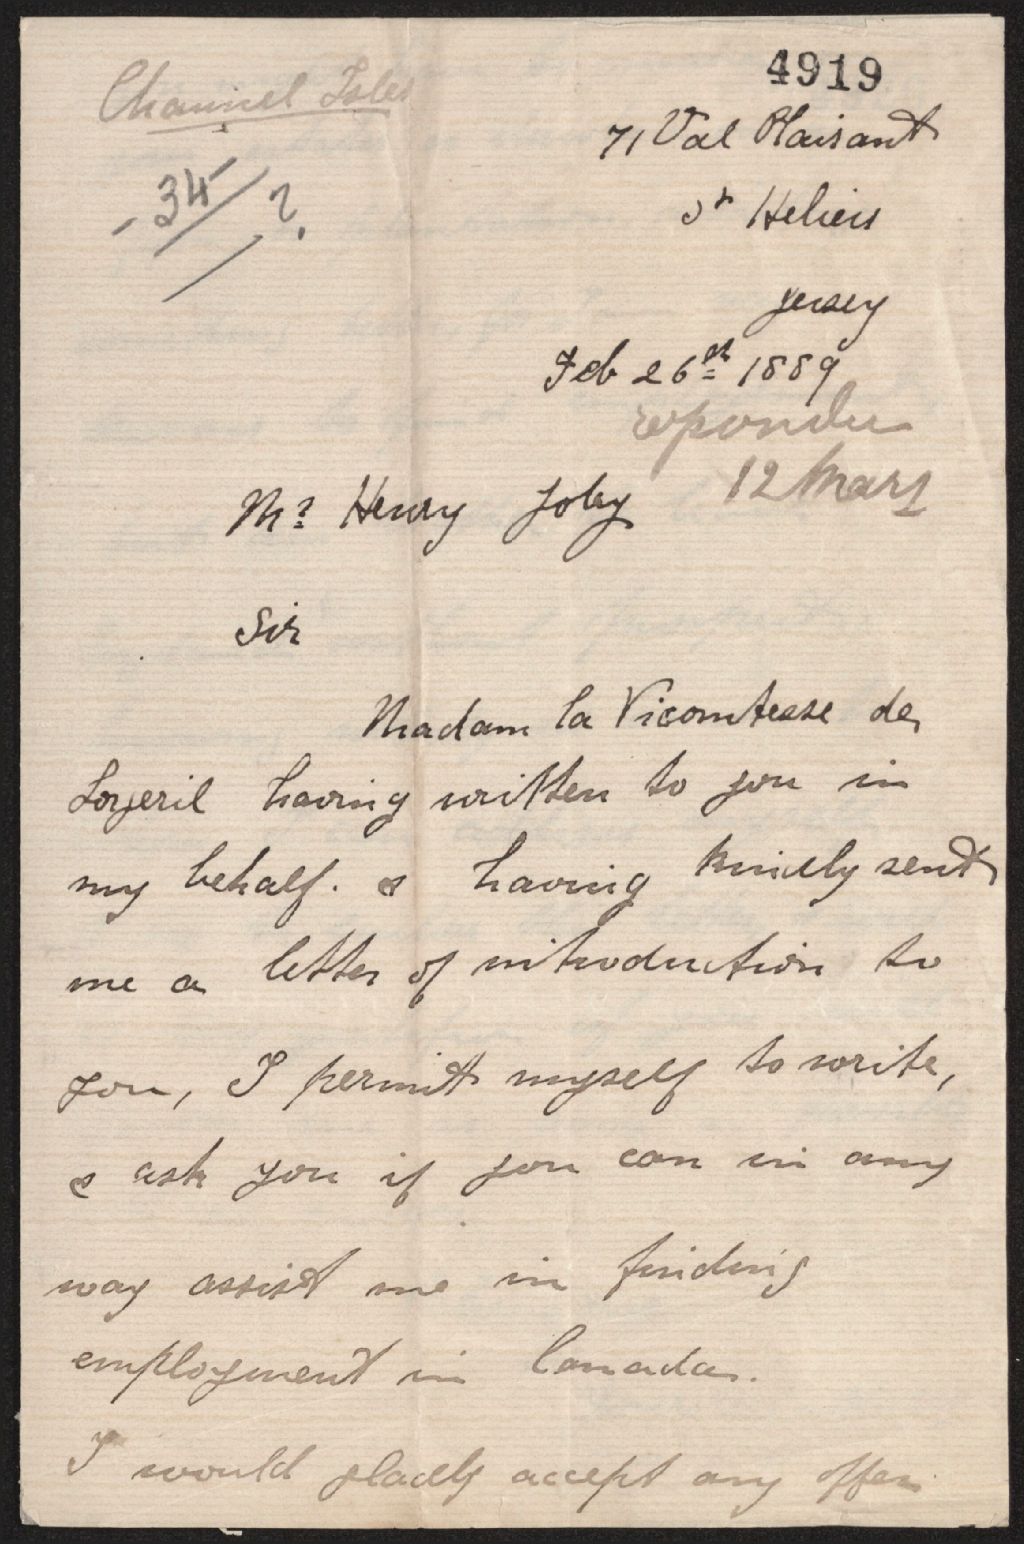 4919
Channel Isles
71 Val Plaisant
-34/?
St Heliers
Jersey
Feb 26th 1889
repondu
12 Mars
Mr Henry Joly
Sir
Madam la Vicomtesse de
Lorgeril having written to you in
my behalf. & having kindly sent
me a letter of introduction to
you, I permit myself to write,
& ask you if you can in any
way assist me in finding
employment in Canada.
I would gladly accept any offer